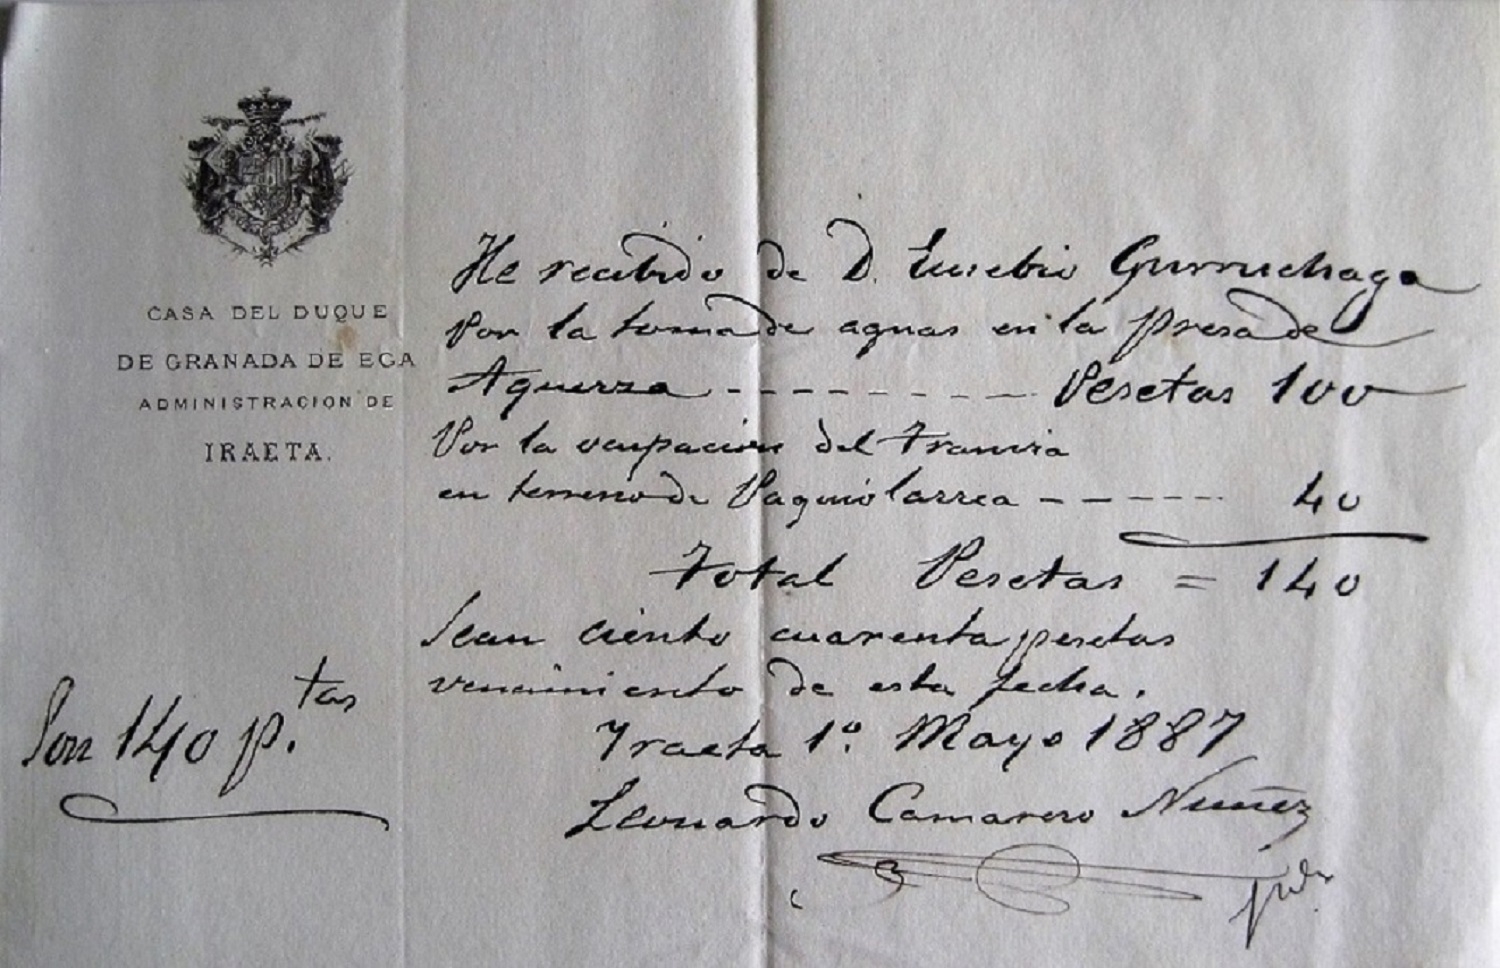 CASA DEL DUQUE
DE GRANADA DE EGA
ADMINISTRACION DE
IRAETA.
He recibido de D. Eusebio Gurruchaga
Por la toma de aguas en la presa de
Aquerza - - - - - - - - - - Pesetas 100
Por la ocupación del Tranvia
en terreno de Paquiolarrea - - - - - - 40
Total Pesetas = 140
Sean ciento cuarenta pesetas
vencimiento de esta fecha.
Yraeta 1º Mayo 1887
Leonardo Camarero Nuñez
Son 140 p.tas